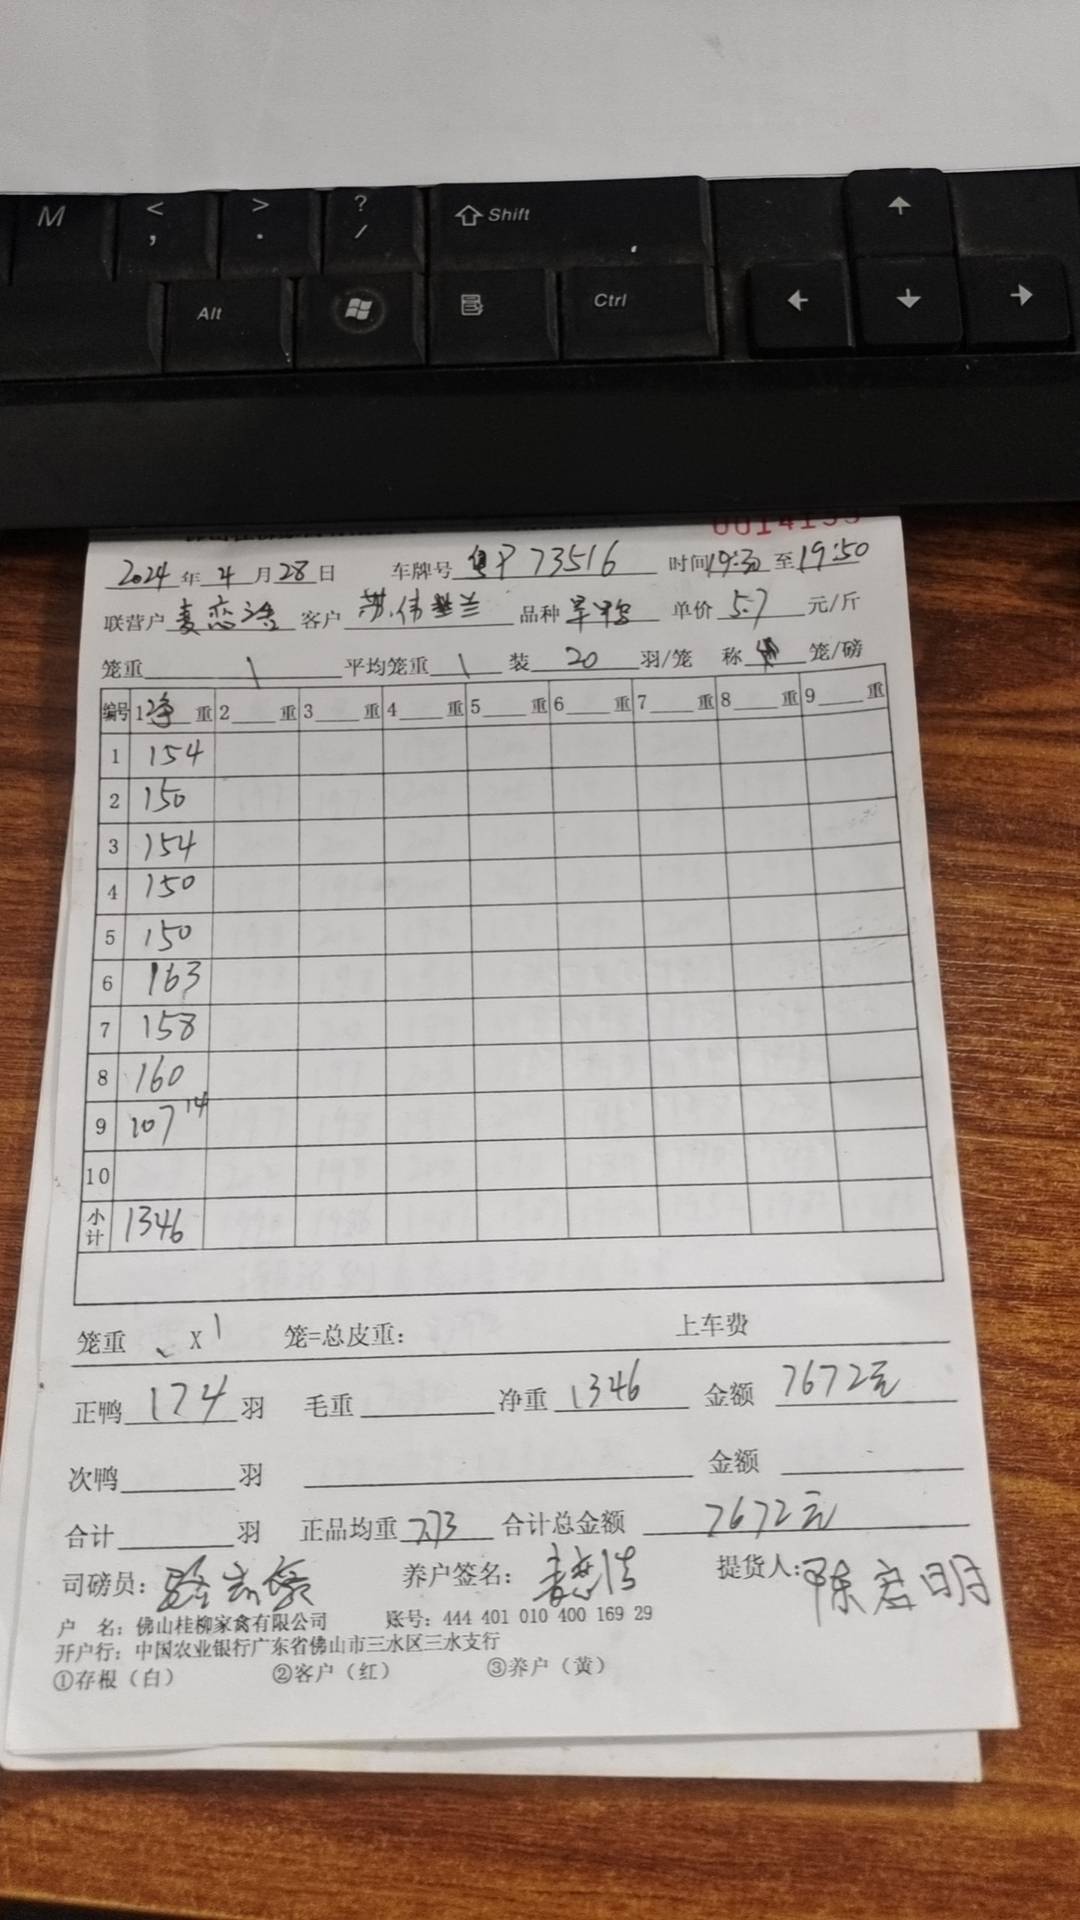 M < , > . ? / Shift
Alt Ctrl
2024年4月28日 车牌号粤P73516 时间19:30至19:50
联营户麦恋浩 客户苏伟兰 品种旱鸭 单价5.7元/斤
笼重 1 平均笼重 1 装20羽/笼 称 笼/磅
编号 1净重 2 重 3 重 4 重 5 重 6 重 7 重 8 重 9 重
1 154
2 150
3 154
4 150
5 150
6 163
7 158
8 160
9 107 14
10
小计 1346
笼重 X 1 笼=总皮重: 上车费
正鸭174羽 毛重 净重1346 金额7672元
次鸭 羽 金额
合计 羽 正品均重7.73 合计总金额 7672元
司磅员: 养户签名: 麦恋浩 提货人:陈启明
户 名: 佛山桂柳家禽有限公司 账号: 444 401 010 400 169 29
开户行: 中国农业银行广东省佛山市三水区三水支行
①存根(白) ②客户(红) ③养户(黄)